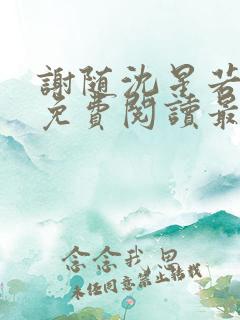 謝随沈星若
免費閱讀最
念念我思
未经同意禁止转载